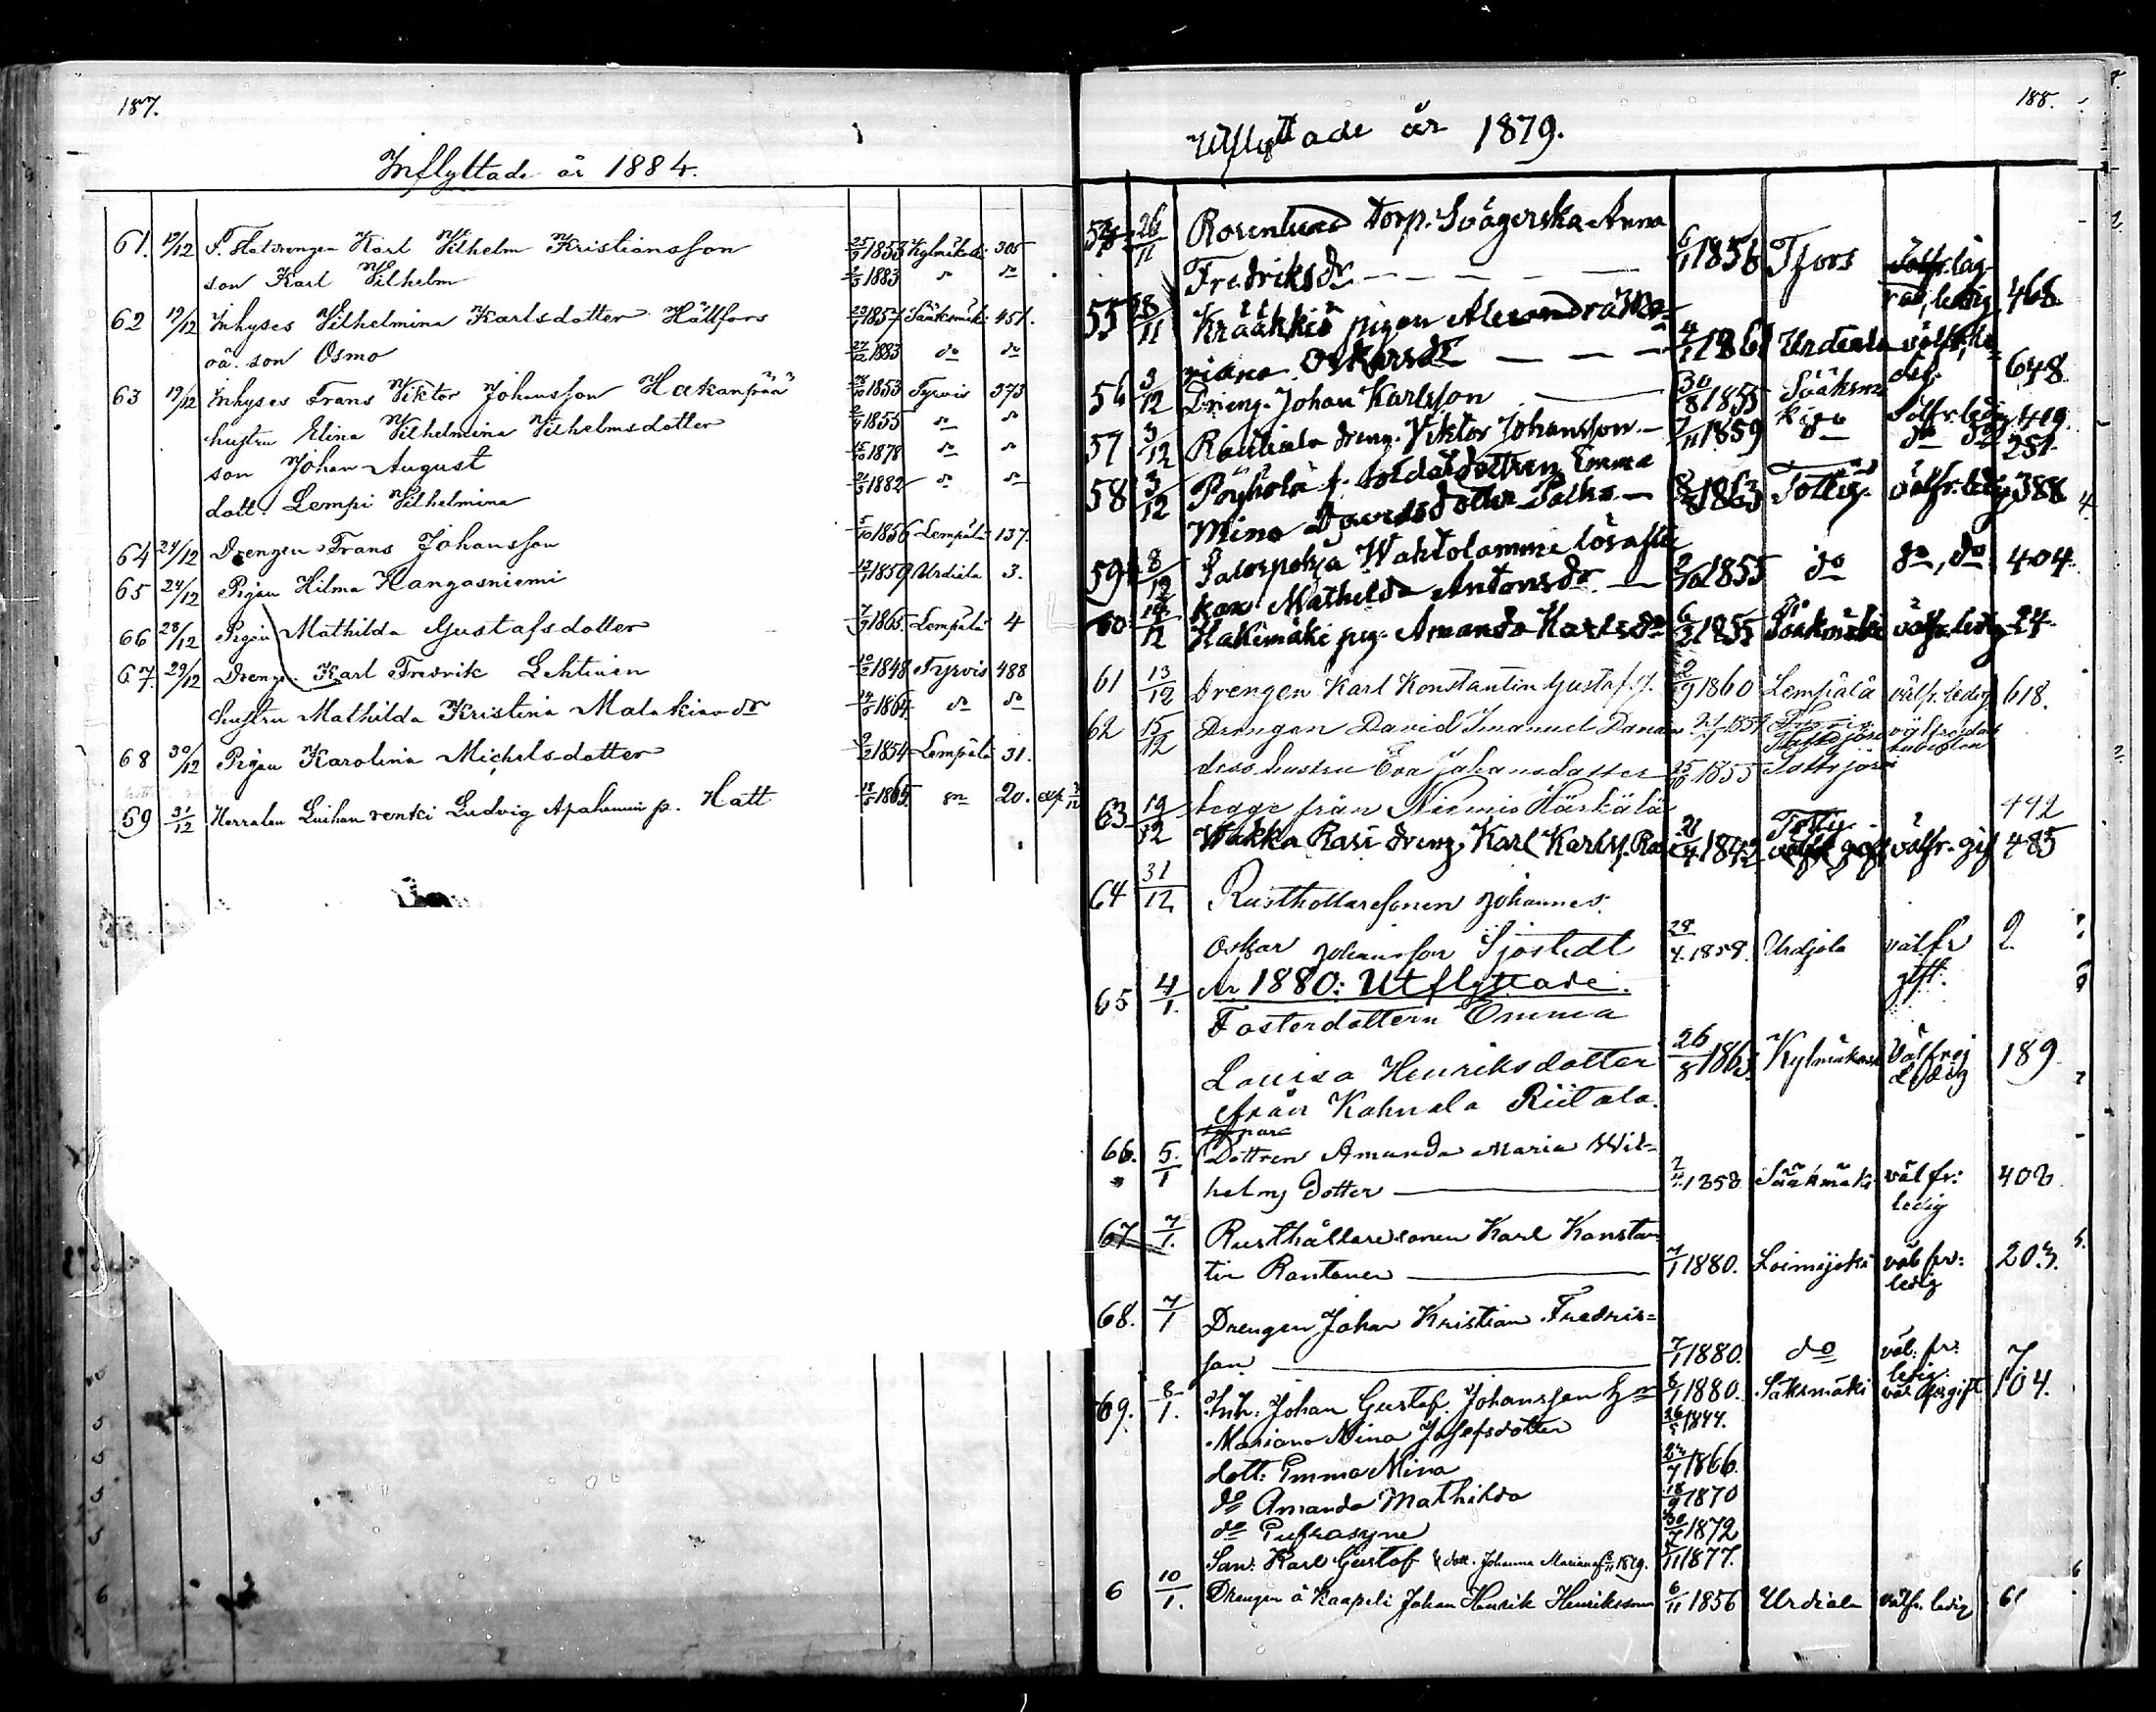 187.
Inflyttade år 1884.
61. 19/12 F. Statdrengen Karl Vilhelm Kristiansson 25/9 1853 Kylmäkoski 305
son Karl Vilhelm 1883 do do
62 19/12 Inhyses Vilhelmina Karlsdotter Hällfors 1857 Sääksmäki 451.
oä. son Osmo 27/12 1883 do do
63 19/12 Inhyses Frans Viktor Johansson Hakanpää 1853 Tyrvis 373
hustru Elina Vilhelmina Vilhelmsdotter 1855 do do
son Johan August 1878 do do
dott. Lempi Vilhelmina 1882 do do
64 24/12 Drengen Frans Johansson 5/10 1856 Lempälä 137.
65 24/12 Pigan Hilma Kangasniemi 1859 Urdiala 3.
66 28/12 Pigan Mathilda Gustafsdotter 1865. Lempälä 4
67. 29/12 Dreng. Karl Fredrik Lehtinen 1848 Tyrvis 488
hustru Mathilda Kristina Malakiasdr 1864 do do
68 30/12 Pigan Karolina Michelsdotter 1854 Lempälä 31.
69 31/12 Herralan Luihan renki Ludvig Apahunni p. Hatt 1865 20.
188.
Utflyttade år 1879.
54 26/11 Rosenlund Torp. Svägerska Anna
Fredriksdr — — — — 6/11 1856 Tfors ledig 468
55 28/11 Kräähkiö pigan Alexandra
Oskarsdr — — — 1861 Urdiala 648
56 3/12 Dreng. Johan Karlsson — 30/8 1855 Sääksmäki välfr. ledig 419.
57 3/12 Rautiala dreng. Viktor Johansson — 7/11 1859 do do do 251.
58 3/12 Pöyhölä f. soldatdottren Emma
Mina Davidsdotter — 1863 Tottij. välfr. ledig 388
59 8/12 Salospohja Wahtolammi lösaste
kon Mathilda Antonsdr — 2/10 1855 do do, do 404
60 12/12 Hakemäki pig. Amanda Karlsdr 1855 Sääksmäki välfr. ledig 24
61 13/12 Drengen Karl Konstantin Gustafss. 2/9 1860 Lempälä välfr. ledig 618.
62 15/12 Drengen David Imanuel
dess hustru Eva Johansdotter 1855 Tottijärvi
begge från Niemis Härkälä 442
63 19/12 Wakka Rasi dreng. Karl Karlss. 21/4 1842 Tottij. välfr. gift 485
64 31/12 Rusthollaresonen Johannes
Oskar Johansson Sjöstedt 28/4 1858. Urdjala välfr 2.
gift.
År 1880: Utflyttade.
65 4/1. Fosterdottern Emma
Lovisa Henriksdotter 26/8 1863. Kylmäkoski Välfrejd Ledig 189.
från Kahnala Riitala.
66. 5./1 Dottren Amanda Maria Wil=
helms dotter — 1858 Sääksmäki välfr: ledig 408.
67 7/1. Rusthållaresonen Karl Konstan
tin Rantanen — 7/1 1880. Loimijoki väl fr: ledig 203.
68. 7/1 Drengen Johan Kristian Fredriks=
son — 7/1 1880. do väl: fr: ledig. 7
69. 8/1. Inh. Johan Gustaf Johansson h. 8/1 1880. Säksmäki väl fr. gift 104.
Mariana Nina Josefsdotter 26/5 1844.
dott. Emma Nina 1866.
do Amanda Mathilda 18/9 1870
do Eufrosyne 30/7 1872
Son. Karl Gustaf & dott. Johanna Mariana 1879. 1877.
6 10/1. Drengen å Kaapeli Johan Henrik Henriksson 6/11 1856 Urdiala välfr. ledig 61